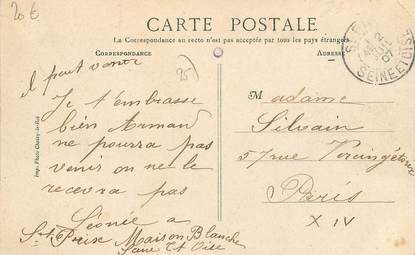 20 €
CARTE POSTALE
La Correspondance au recto n'est pas acceptée par tous les pays étrangers.
CORRESPONDANCE
ADRESSE
SEINE ET OISE
95)
il peut venir
Je t'embrasse
bien Armand
ne pourra pas
venir on ne le
recevra pas
Léonie a
St Prix Maison Blanche
Seine et Oise
Imp. Photo Choisy-le-Roi
Madame
Silvain
57 rue Vercingétorix
Paris
XIV